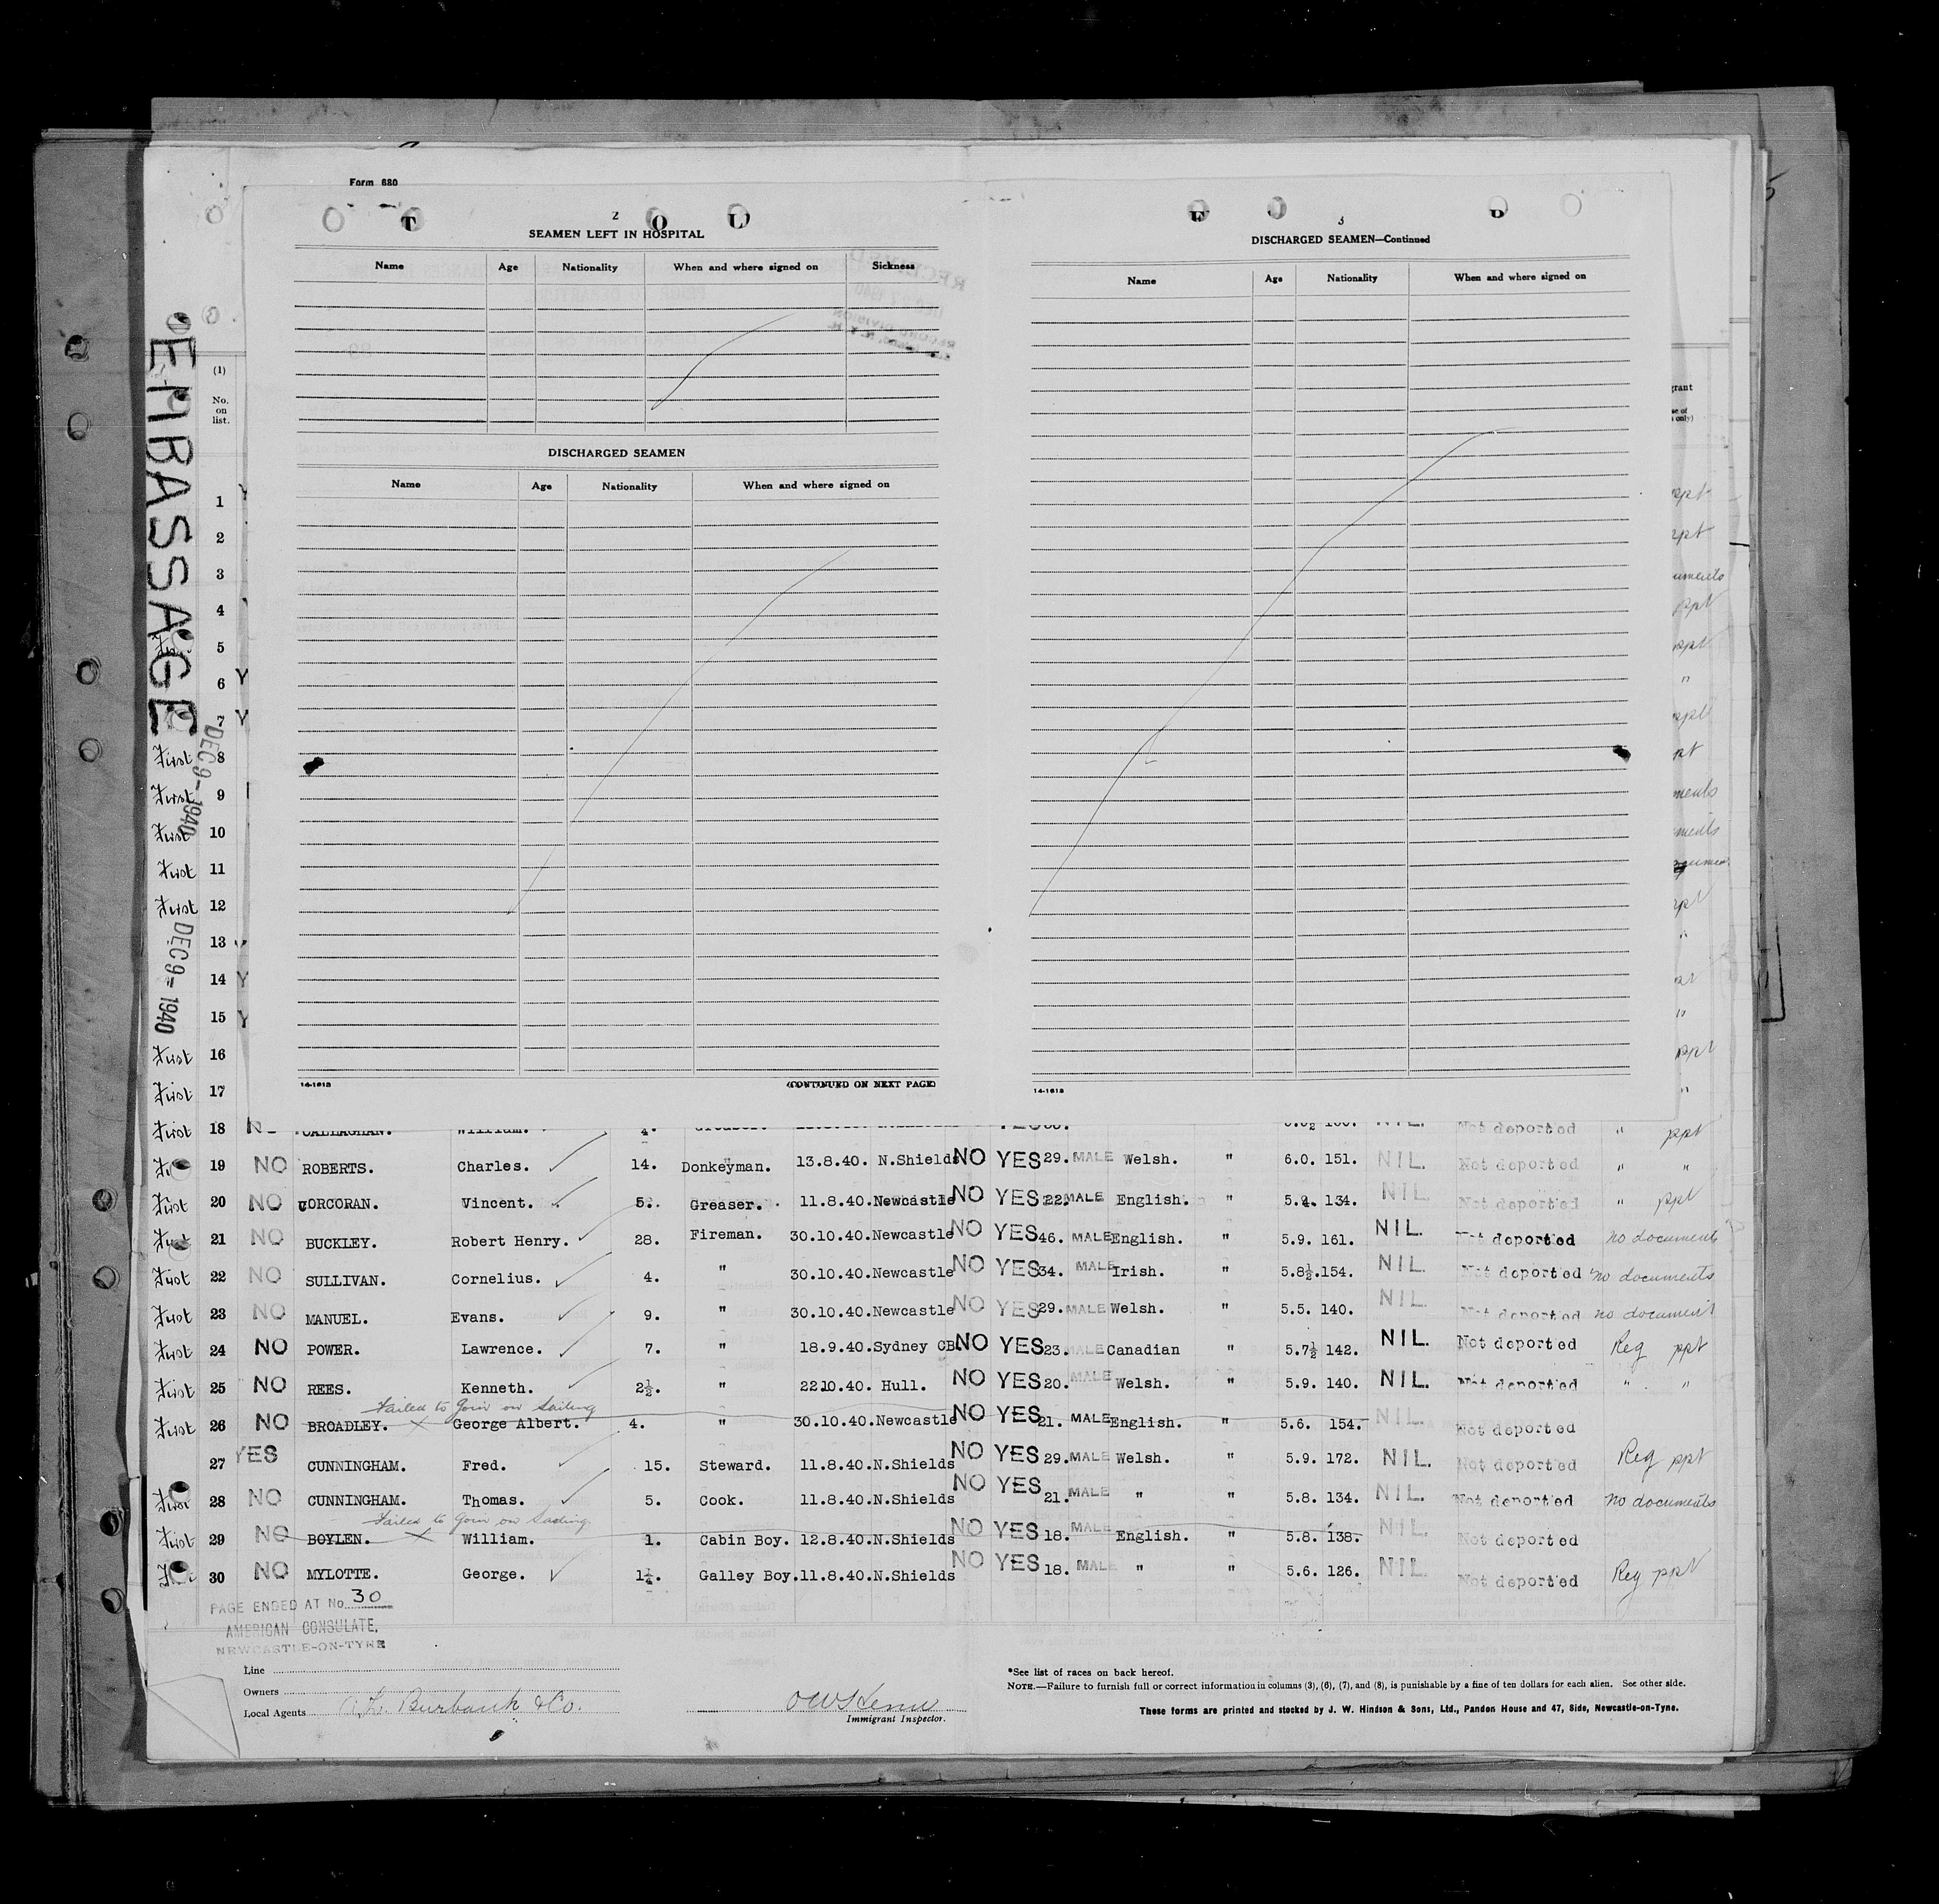 Form 680
T O L
2
SEAMEN LEFT IN HOSPITAL
Name Age Nationality When and where signed on Sickness
DISCHARGED SEAMEN
Name Age Nationality When and where signed on
14-1613
(CONTINUED ON NEXT PAGE)
3
DISCHARGED SEAMEN—Continued
Name Age Nationality When and where signed on
14-1613
EMBASSAGE
DEC 9- 1940
DEC 9- 1940
(1)
No.
on
list.
1
2
3
4
5
6 Y
7 Y
First 8
First 9
First 10
First 11
First 12
13
14 Y
15 Y
First 16
First 17
First 18 CALLAGHAN. William. Not deported " ppt
19 NO ROBERTS. Charles. 14. Donkeyman. 13.8.40. N.Shields NO YES 29. MALE Welsh. " 6.0. 151. NIL. Not deported " "
First 20 NO CORCORAN. Vincent. 5. Greaser. 11.8.40. Newcastle NO YES 22. MALE English. " 5.4. 134. NIL. Not deported " ppt
First 21 NO BUCKLEY. Robert Henry. 28. Fireman. 30.10.40. Newcastle NO YES 46. MALE English. " 5.9. 161. NIL. Not deported no documents
First 22 NO SULLIVAN. Cornelius. 4. " 30.10.40. Newcastle NO YES 34. MALE Irish. " 5.8½. 154. NIL. Not deported no documents
First 23 NO MANUEL. Evans. 9. " 30.10.40. Newcastle NO YES 29. MALE Welsh. " 5.5. 140. NIL. Not deported no document
First 24 NO POWER. Lawrence. 7. " 18.9.40. Sydney CB. NO YES 23. MALE Canadian " 5.7½ 142. NIL. Not deported Reg ppt
First 25 NO REES. Kenneth. 2½. " 22.10.40. Hull. NO YES 20. MALE Welsh. " 5.9. 140. NIL. Not deported " "
Failed to Join on Sailing
First 26 NO BROADLEY. George Albert. 4. " 30.10.40. Newcastle NO YES 21. MALE English. " 5.6. 154. NIL. Not deported
27 YES CUNNINGHAM. Fred. 15. Steward. 11.8.40. N.Shields NO YES 29. MALE Welsh. " 5.9. 172. NIL. Not deported Reg ppt
First 28 NO CUNNINGHAM. Thomas. 5. Cook. 11.8.40. N.Shields NO YES 21. MALE " " 5.8. 134. NIL. Not deported No documents
Failed to Join on Sailing
First 29 NO BOYLEN. William. 1. Cabin Boy. 12.8.40. N.Shields NO YES 18. MALE English. " 5.8. 138. NIL. Not deported
30 NO MYLOTTE. George. 1¼. Galley Boy. 11.8.40. N.Shields NO YES 18. MALE " " 5.6. 126. NIL. Not deported Reg ppt
PAGE ENDED AT No. 30
AMERICAN CONSULATE,
NEWCASTLE-ON-TYNE
Line
Owners
Local Agents A.L. Burbank & Co.
Immigrant Inspector.
*See list of races on back hereof.
NOTE.—Failure to furnish full or correct information in columns (3), (6), (7), and (8), is punishable by a fine of ten dollars for each alien. See other side.
These forms are printed and stocked by J. W. Hindson & Sons, Ltd., Pandon House and 47, Side, Newcastle-on-Tyne.